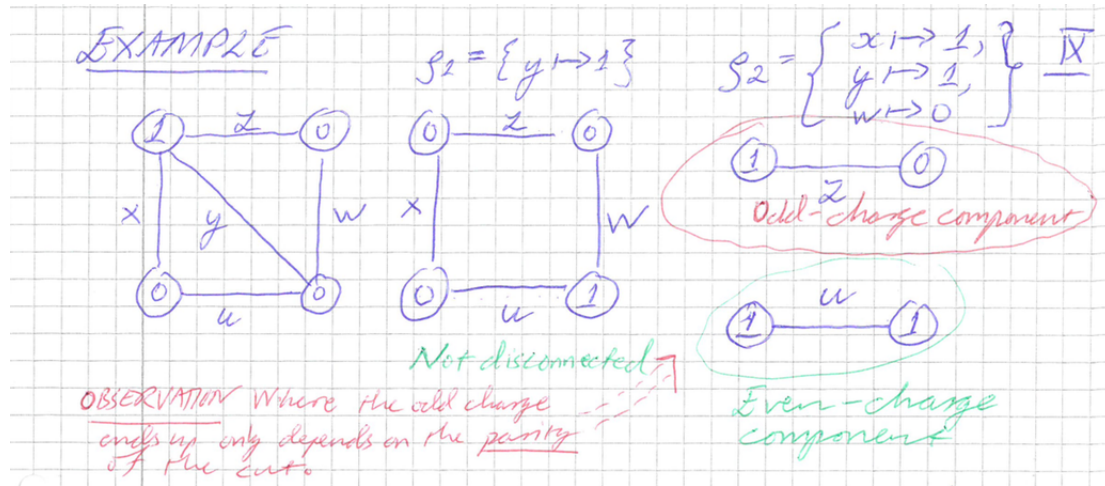 EXAMPLE
ρ1 = {y ↦ 1}
ρ2 = { x ↦ 1,
y ↦ 1,
w ↦ 0 }
IX
1 z 0
x y w
0 u 0
0 z 0
x w
0 u 1
1 z 0
Odd-charge component
1 u 1
Even-charge
component
Not disconnected
OBSERVATION Where the odd charge
ends up only depends on the parity
of the cut.